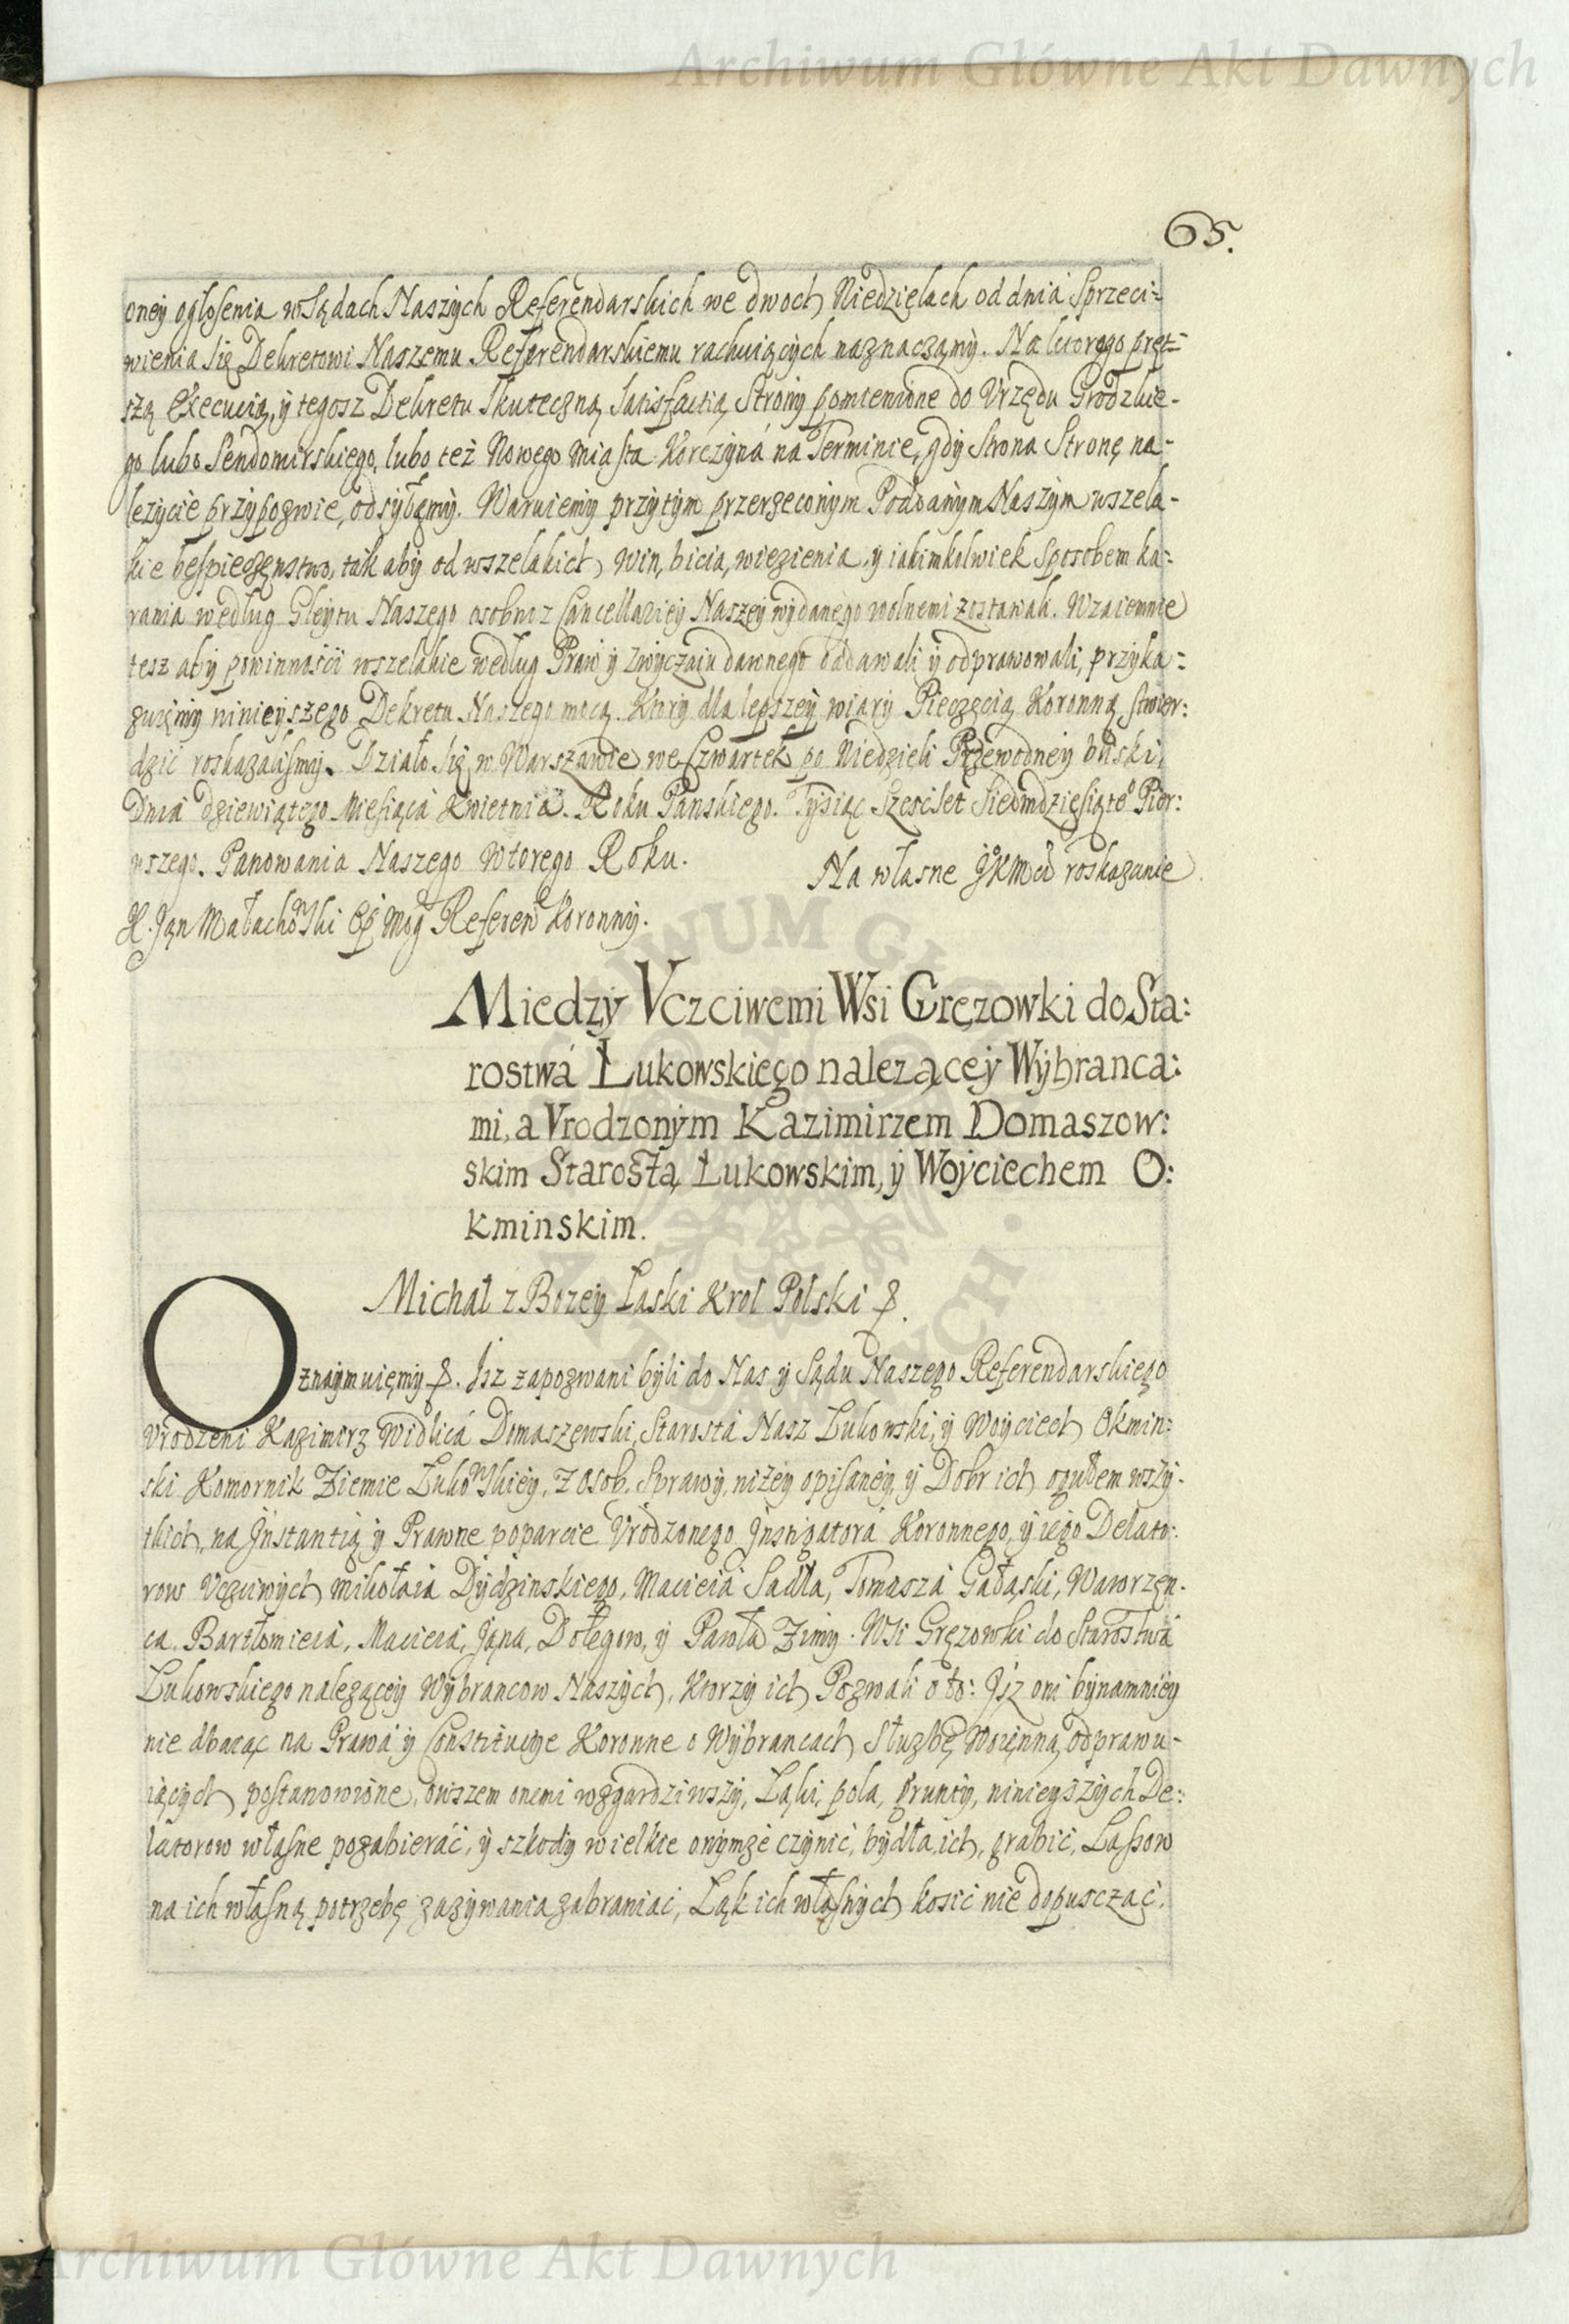 Archiwum Główne Akt Dawnych
65.
oney ogłosenia w Sądach Naszych Referendarskich we dwoch Niedzielach od dnia Sprzeci=
wienia się Dekretowi Naszemu Referendarskiemu rachuiących naznaczamy. Na ktorego pręt=
szą Execucią, y tegosz Dekretu skuteczną Satisfactią Strony pomienione do Vrzędu Grodzkie-
go lubo Sendomirskiego, lubo też Nowego Miasta Korczyná na Terminie, gdy Strona Stronę na-
lezycie przypozwie, odsyłamy. Waruiemy przytym przerzeconym Poddanym Naszym wszela-
kie bespieczęnstwo, tak aby od wszelakich win, bicia, wiezienia, y iakimkolwiek sposobem ka:
rania według Gleytu Naszego osobno z Cancellariey Naszey wydanego wolnemi zostawali. Wzaiemnie
tesz aby powinnosci wszelakie według Praw y Zwyczaiu dawnego oddawali y odprawowali, przyka=
zuięmy ninieyszego Dekretu Naszego mocą. Ktory dla lepszey wiary Pieczęcią Koronną stwier:
dzić roskazalismy. Działo się w Warszawie we Czwartek po Niedzieli Przewodney bliski,
Dnia dziewiątego Miesiąca Kwietnia. Roku Panskiego. Tysiąc Szescset Siedmdziesiąteo Pier:
wszego. Panowania Naszego Wtorego Roku.
Na własne JKMci roskazanie
X. Jan Małachowski Mog Referen Koronny.
Miedzy Vczciwemi Wsi Gręzowki do Sta:
rostwá Łukowskiego nalezącey Wybranca:
mi, a Vrodzonym Kazimirzem Domaszow:
skim Starostą Łukowskim, y Woyciechem O:
kminskim.
Michał z Bozey Łaski Krol Polski &.
Oznaymuięmy &. Isz zapozwani byli do Nas y Sądu Naszego Referendarskiego
Vrodzeni Kazimirz Widlicá Domaszewski, Starostá Nasz Łukowski, y Woyciech Okmin:
ski Komornik Ziemie Łukowskiey, z Osob, Sprawy, nizey opisaney, y Dobr ich ogułem wszy-
tkich, na Instantią y Prawne poparcie Vrodzonego Instigatorá Koronnego, y iego Delato:
row Vczciwych Mikołaia Dydzinskiego, Macieiá Sadła, Tomaszá Gałaski, Wawrzęn-
ca. Bartłomieia, Macieia, Jana, Dołegow, y Pawła Zimy. Wsi Gręzowki do Starostwá
Łukowskiego nalezącey Wybrancow Naszych, Ktorzy ich Pozwali o to: Isz oni bynamniey
nie dbaiąc na Prawá y Constitucye Koronne o Wybrancach Służbę Woięnną odprawu-
iących postanowione, owszem onemi wzgardziwszy, Łąki, pola, grunty, ninieyszych De:
latorow własne pozabieráć, y szkody wielkie onymze czynić, bydła ich, grabić, Lassow
na ich własną potrzebę zazywania zabraniać, Łąk ich własnych kosić nie dopuszczać.
Archiwum Główne Akt Dawnych